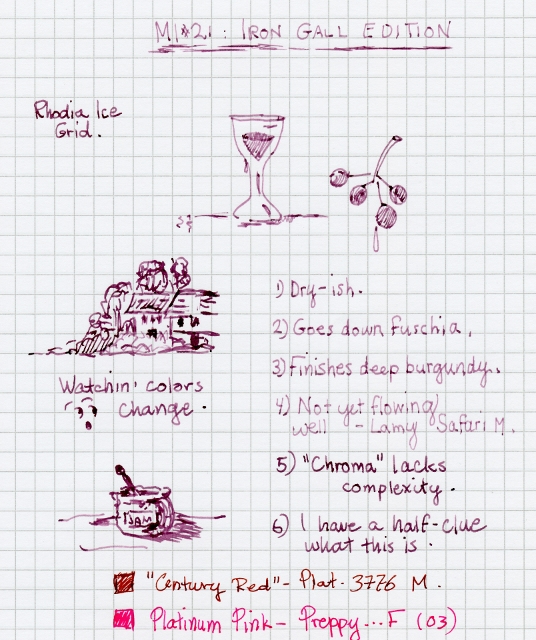 M1*21: IRON GALL EDITION
Rhodia Ice
Grid.
1) Dry-ish.
2) Goes down fuschia.
3) Finishes deep burgundy.
4) Not yet flowing
well - Lamy Safari M.
Watchin' colors
change.
5) "Chroma" lacks
complexity.
JAM
6) I have a half-clue
what this is.
"Century Red" - Plat. 3776 M.
Platinum Pink - Preppy...F (03)